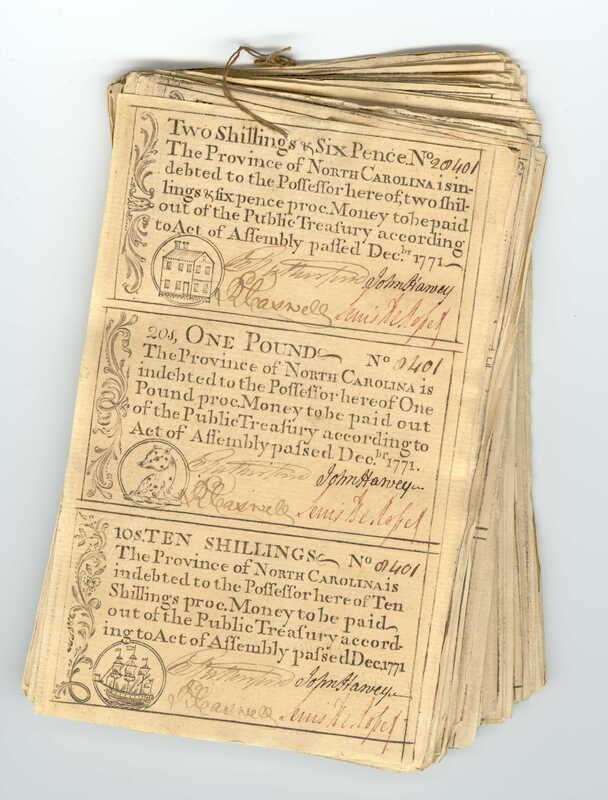 Two Shillings & Six Pence. No 28401
The Province of NORTH CAROLINA is in-
debted to the Poſſeſſor here of, two shil-
lings & six pence proc. Money to be paid
out of the Public Treaſury according
to Act of Aſſembly paſſed Dec.br 1771
John Harvey
R Caswell Lewis De Roſset
20s, ONE POUND No 8401
The Province of NORTH CAROLINA is
indebted to the Poſſeſſor here of One
Pound proc. Money to be paid out
of the Public Treaſury according to
Act of Aſſembly paſſed Dec.br 1771.
John Harvey
R Caswell Lewis De Roſset
10s. TEN SHILLINGS No 8401
The Province of NORTH CAROLINA is
indebted to the Poſſeſſor here of Ten
Shillings proc. Money to be paid
out of the Public Treaſury accord-
ing to Act of Aſſembly paſſed Dec. 1771
John Harvey
R Caswell Lewis De Roſset